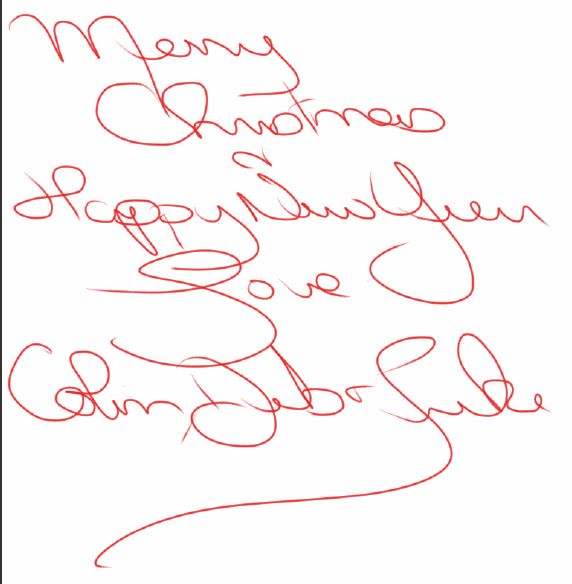 Merry
Christmas
Happy New Year
Love
Colin, Deb & Luke